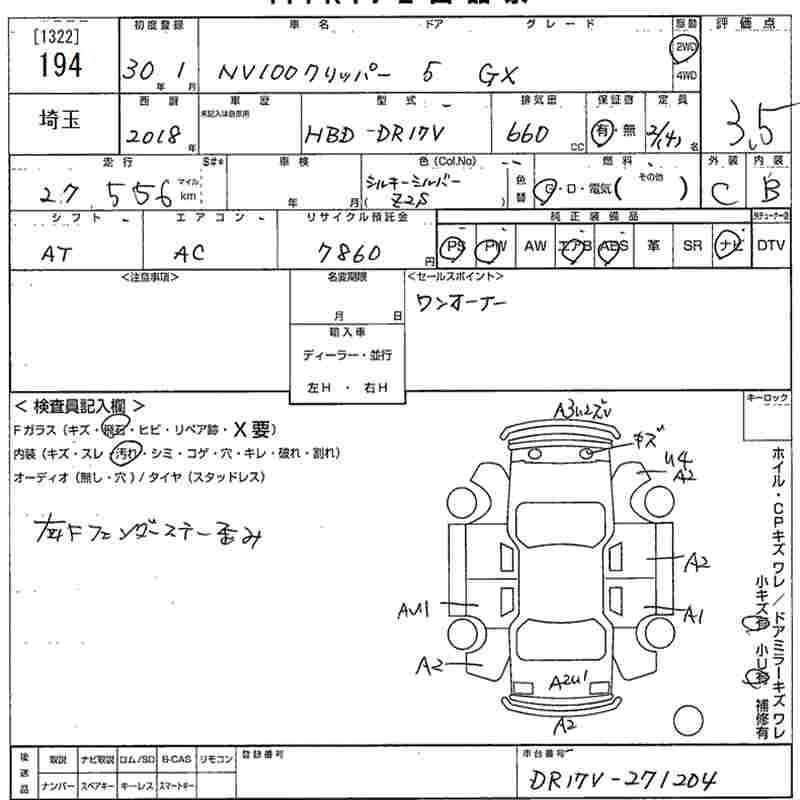 [1322]
194
初度登録 車名 ドア グレード 駆動 評価点
30年 1月 NV100クリッパー 5 GX 2WD 4WD
3.5
埼玉
西暦 車歴 型式 排気量 保証書 定員
未記入は自家用
2018年 HBD-DR17V 660cc 有・無 2/(4)名
走行 S#* 車検 色(Col.No) 燃料 外装 内装
27,556 マイル km 年 月 シルキーシルバー ( Z2S ) 色替 G・D・電気( その他 ) C B
シフト エアコン リサイクル預託金 純正装備品
AT AC 7860円 PS PW AW エアB ABS 革 SR ナビ DTV
<注意事項> 名変期限 <セールスポイント>
月 日
ワンオーナー
輸入車
ディーラー・並行
左H ・ 右H
< 検査員記入欄 >
キーロック
Fガラス (キズ・飛石・ヒビ・リペア跡・X要)
内装 (キズ・スレ・汚れ・シミ・コゲ・穴・キレ・破れ・割れ)
オーディオ (無し・穴) / タイヤ (スタッドレス)
キズ
U4
A2
A2
AU1
A1
A2
A2U1
A2
ホイル・CPキズ ワレ/ドアミラーキズ ワレ
小キズ有 小U有 補修有
後送品
取説 ナビ取説 ロム/SD B-CAS リモコン
ナンバー スペアキー キーレス スマートキー
登録番号
車台番号
DR17V-271204